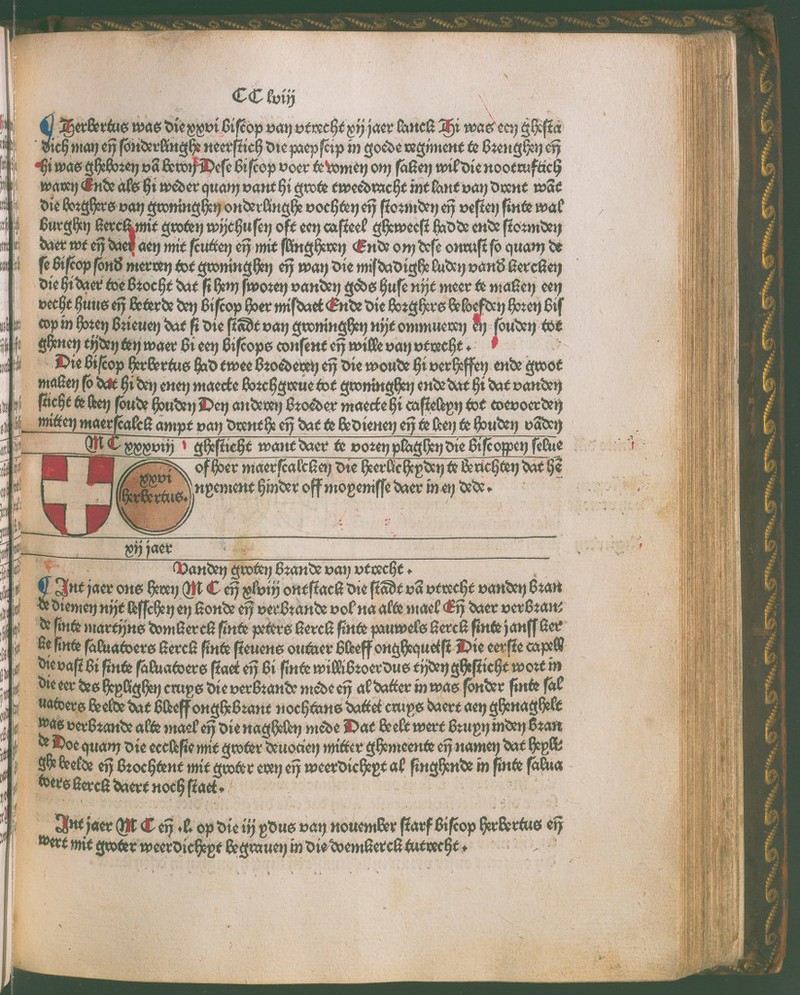 CC lviij
¶ Herbertus was die xxvi biscop van vtrecht xij jaer lanck Hi was een ghesta
dich man en̄ sonderlinghe neerstich die paepscip in goede regiment te brenghen en̄
hi was gheboren vā beron Dese biscop voer te romen om saken wil die nootruftich
waren Ende als hi weder quam vant hi grote tweedracht int lant van drent wāt
die borghers van groninghen onderlinghe vochten en̄ stormden en̄ vesten sinte wal
burghen kerck mit groten wijchusen oft een casteel gheweest hadde ende stormden
daer wt en̄ daer aen mit scutten en̄ mit slingheren Ende om dese onrust so quam de
se biscop sond̄ merren tot groninghen en̄ wan die misdadighe luden vand̄ kercken
die hi daer toe brocht dat si hem sworen vanden gods huse nijt meer te maken een
vecht huus en̄ beterde den biscop hoer misdaet Ende die borghers beloefden horen bis
cop in horen brieuen dat si die stadt van groninghen nijt ommueren en souden tot
ghenen tijden ten waer bi een biscops consent en̄ wille van vtrecht .
Die biscop herbertus had twee broederen en̄ die woude hi verheffen ende groot
maken so dat hi den enen maecte borchgreue tot groninghen ende dat hi dat vanden
sticht te leen soude houden Den anderen broeder maecte hi casteleyn tot coevoerden
mitten maerscalck ampt van drenthe en̄ dat te bedienen en̄ te leen te houden vādēn
M C xxxviij ghesticht want daer te voren plaghen die biscoppen selue
of hoer maerscalcken die heerlicheyden te berichten dat hē
xxvi
herbertus.
nyement hinder off moyenisse daer in en dede .
xij jaer
Vanden groten brande van vtrecht .
¶ Int jaer ons heren M C en̄ xlviij ontstack die stadt vā vtrecht vanden bran
de diemen nijt lesschen en konde en̄ verbrande vol na alte mael En̄ daer verbran
de sinte martijns domkerck sinte peters kerck sinte pauwels kerck sinte jans ker
ke sinte saluatoers kerck sinte steuens outaer bleeff onghequetst Die eerste capell
die vast bi sinte saluatoers staet en̄ bi sinte willibroerdus tijden ghesticht wort in
die eer des heylighen cruys die verbrande mede en̄ al datter in was sonder sinte sal
uatoers beelde dat bleeff onghebrant nochtans dattet cruys daert aen ghenaghelt
was verbrande alte mael en̄ die naghelen mede Dat beelt wert bruyn inden bran
de Doe quam die ecclesie mit groter deuocien mitter ghemeente en̄ namen dat heyli
ghe beelde en̄ brochtent mit groter eren en̄ weerdicheyt al singhende in sinte salua
toers kerck daert noch staet .
Int jaer M C en̄ .l. op die iij ydus van nouember starf biscop herbertus en̄
wert mit groter weerdicheyt begrauen in die doemkerck tutrecht .